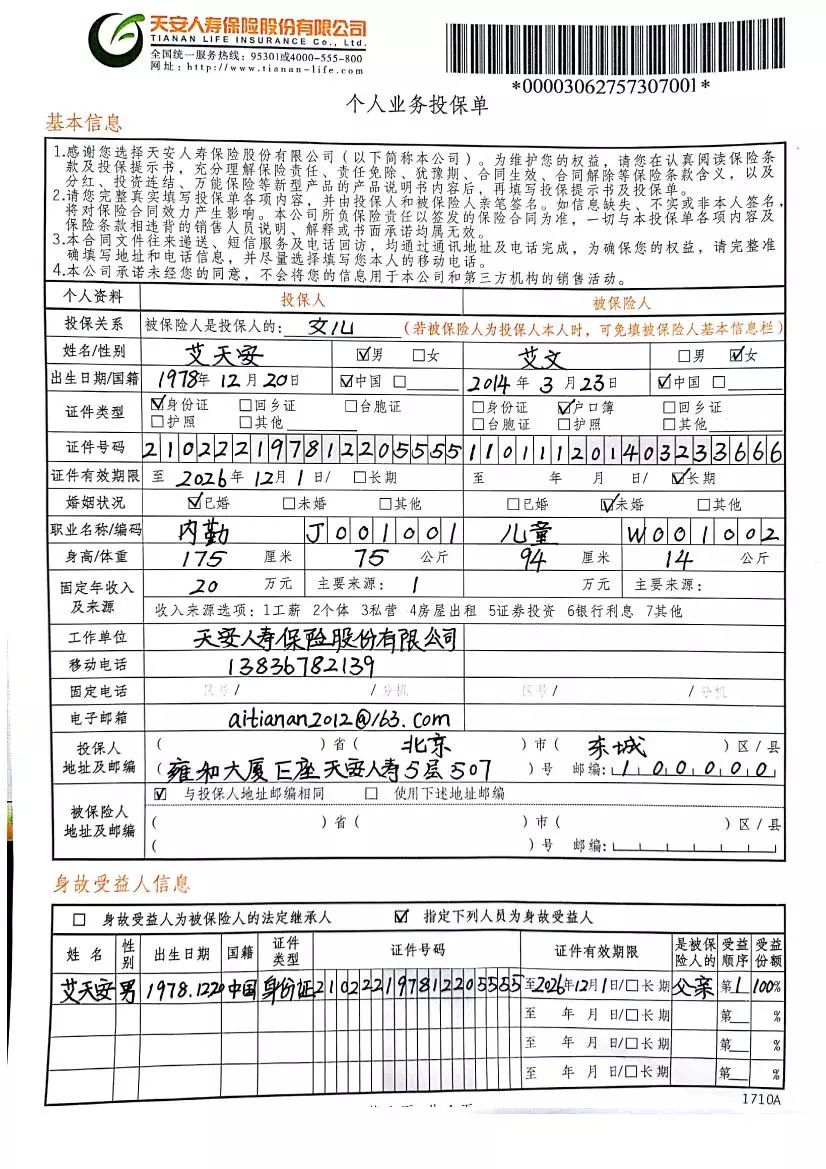 天安人寿保险股份有限公司
TIANAN LIFE INSURANCE Co., Ltd.
全国统一服务热线: 95301或4000-555-800
网址: http://www.tianan-life.com
*00003062757307001*
个人业务投保单
基本信息
1.感谢您选择天安人寿保险股份有限公司(以下简称本公司)。为维护您的权益,请您在认真阅读保险条
款及投保提示书,充分理解保险责任、责任免除、犹豫期、合同生效、合同解除等保险条款含义,以及
分红、投资连结、万能保险等新型产品的产品说明书内容后,再填写投保提示书及投保单。
2.请您完整真实填写投保单各项内容,并由投保人和被保险人亲笔签名。如信息缺失、不实或非本人签名,
将对保险合同效力产生影响。本公司所负保险责任以签发的保险合同为准,一切与本投保单各项内容及
保险条款相违背的销售人员说明、解释或书面承诺均属无效。
3.本合同文件往来递送、短信服务及电话回访,均通过通讯地址及电话完成,为确保您的权益,请完整准
确填写地址和电话信息,并尽量选择填写您本人的移动电话。
4.本公司承诺未经您的同意,不会将您的信息用于本公司和第三方机构的销售活动。
个人资料 投保人 被保险人
投保关系 被保险人是投保人的: 女儿 (若被保险人为投保人本人时,可免填被保险人基本信息栏)
姓名/性别 艾天安 ☑男 □女 艾文 □男 ☑女
出生日期/国籍 1978年 12月 20日 ☑中国 □ 2014年 3月 23日 ☑中国 □
证件类型 ☑身份证 □回乡证 □台胞证 □身份证 ☑户口簿 □回乡证
□护照 □其他 □台胞证 □护照 □其他
证件号码 210222197812205555 110111201403233666
证件有效期限 至 2026年 12月 1日/ □长期 至 年 月 日/ ☑长期
婚姻状况 ☑已婚 □未婚 □其他 □已婚 ☑未婚 □其他
职业名称/编码 内勤 J001001 儿童 W001002
身高/体重 175 厘米 75 公斤 94 厘米 14 公斤
固定年收入 20 万元 主要来源: 1 万元 主要来源:
及来源 收入来源选项: 1工薪 2个体 3私营 4房屋出租 5证券投资 6银行利息 7其他
工作单位 天安人寿保险股份有限公司
移动电话 13836782139
固定电话 区号/ /分机 区号/ /分机
电子邮箱 aitianan2012@163.com
投保人 ( )省( 北京 )市( 东城 )区/县
地址及邮编 (雍和大厦E座天安人寿5层507 )号 邮编: 100000
☑ 与投保人地址邮编相同 □ 使用下述地址邮编
被保险人 ( )省( )市( )区/县
地址及邮编 ( )号 邮编:
身故受益人信息
□ 身故受益人为被保险人的法定继承人 ☑ 指定下列人员为身故受益人
姓名 性别 出生日期 国籍 证件类型 证件号码 证件有效期限 是被保险人的 受益顺序 受益份额
艾天安 男 1978.12.20 中国 身份证 210222197812205555 至2026年12月1日/□长期 父亲 第1 100%
至 年 月 日/□长期 第 %
至 年 月 日/□长期 第 %
至 年 月 日/□长期 第 %
1710A